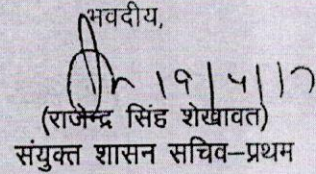 भवदीय,
19/4/17
(राजेन्द्र सिंह शेखावत)
संयुक्त शासन सचिव–प्रथम